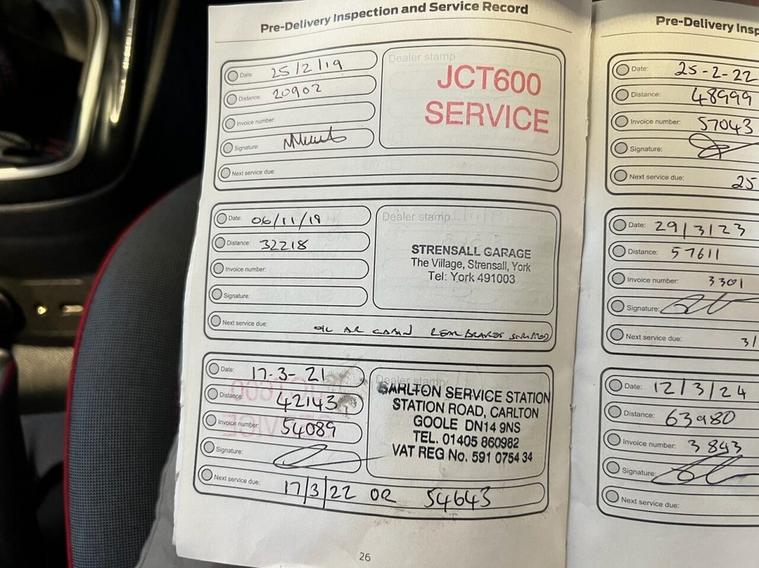 Pre-Delivery Inspection and Service Record
Date: 25/2/19
Distance: 20902
Invoice number:
Signature:
Next service due:
Dealer stamp
JCT600
SERVICE
Date: 06/11/19
Distance: 32218
Invoice number:
Signature:
Next service due: OIL AIR CABIN REAR BRAKES
Dealer stamp
STRENSALL GARAGE
The Village, Strensall, York
Tel: York 491003
Date: 17-3-21
Distance: 42143
Invoice number: 54089
Signature:
Next service due: 17/3/22 OR 54643
Dealer stamp
CARLTON SERVICE STATION
STATION ROAD, CARLTON
GOOLE DN14 9NS
TEL. 01405 860982
VAT REG No. 591 0754 34
26
Pre-Delivery Insp
Date: 25-2-22
Distance: 48999
Invoice number: 57043
Signature:
Next service due: 25
Date: 29/3/23
Distance: 57611
Invoice number: 3301
Signature:
Next service due: 31
Date: 12/3/24
Distance: 63980
Invoice number: 3893
Signature:
Next service due: